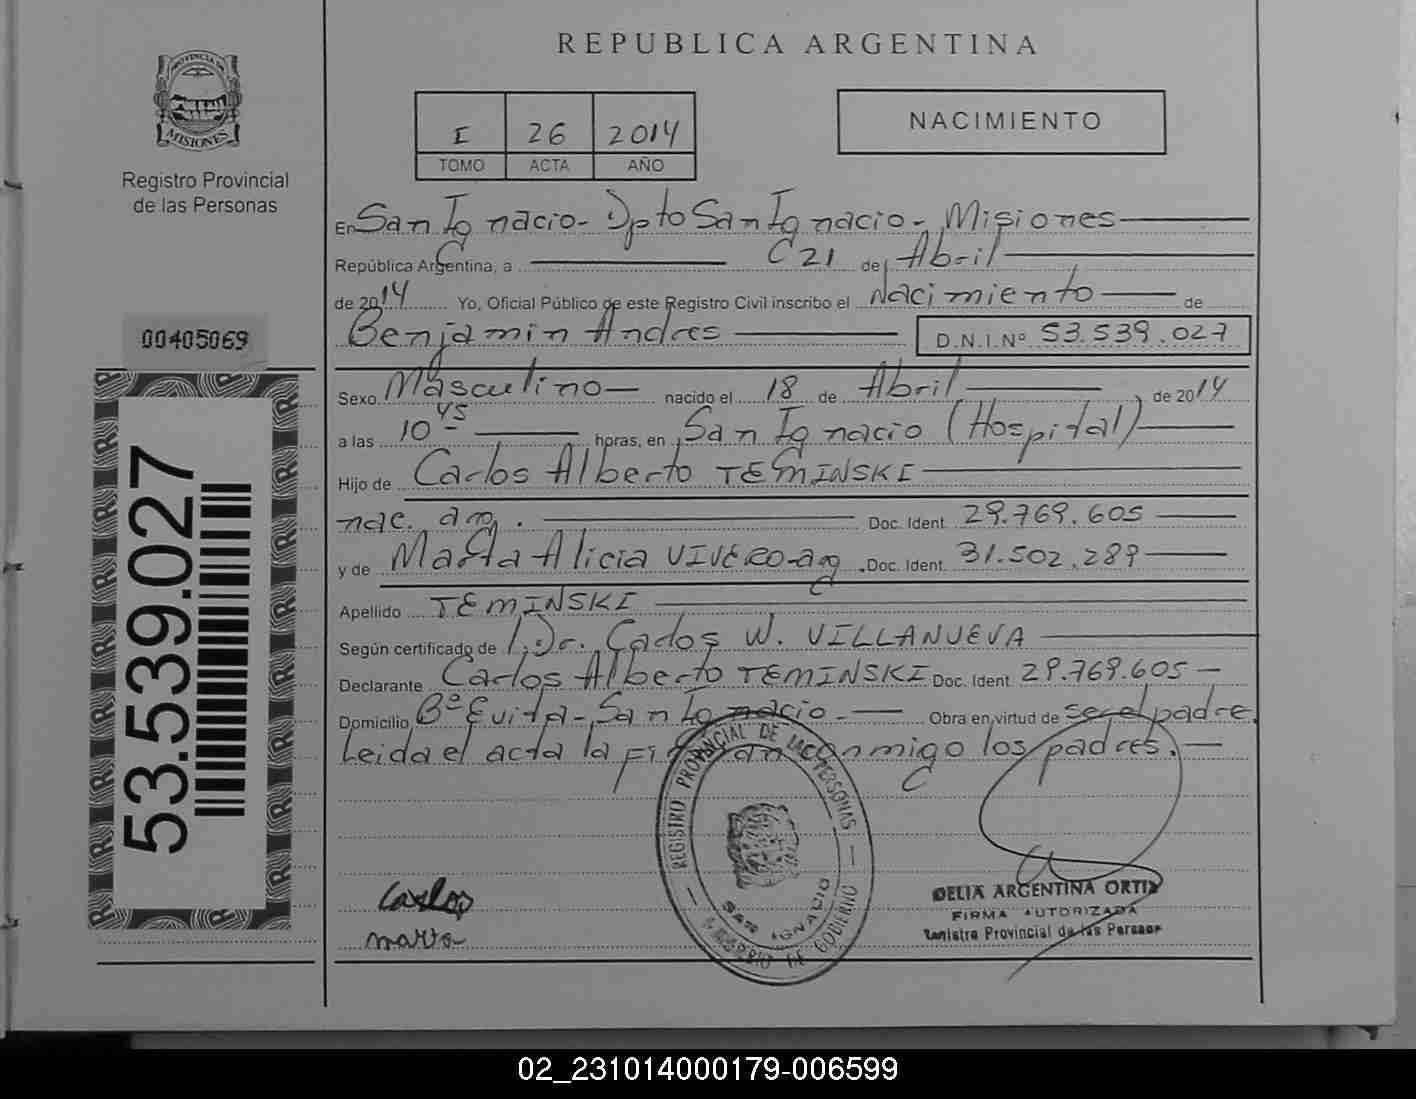 REPUBLICA ARGENTINA
PROVINCIA DE
MISIONES
Registro Provincial
de las Personas
I 26 2014
TOMO ACTA AÑO
NACIMIENTO
En San Ignacio - Dpto San Ignacio - Misiones
República Argentina, a 21 de Abril
de 2014 Yo, Oficial Público de este Registro Civil inscribo el Nacimiento de
Benjamin Andres D.N.I.Nº 53.539.027
00405069
53.539.027
Sexo Masculino nacido el 18 de Abril de 2014
a las 10 45 horas, en San Ignacio (Hospital)
Hijo de Carlos Alberto TEMINSKI
nac. arg. Doc. Ident. 29.769.605
y de Marta Alicia VIVERO - arg. Doc. Ident. 31.502.289
Apellido TEMINSKI
Según certificado de Dr. Carlos W. VILLANUEVA
Declarante Carlos Alberto TEMINSKI Doc. Ident. 29.769.605
Domicilio Bº Evita - San Ignacio - Obra en virtud de ser el padre.
Leida el acta la firman conmigo los padres.
REGISTRO PROVINCIAL DE LAS PERSONAS
SAN IGNACIO
MINISTERIO DE GOBIERNO
Carlos
marta
DELIA ARGENTINA ORTIZ
FIRMA AUTORIZADA
Registro Provincial de las Personas
02_231014000179-006599